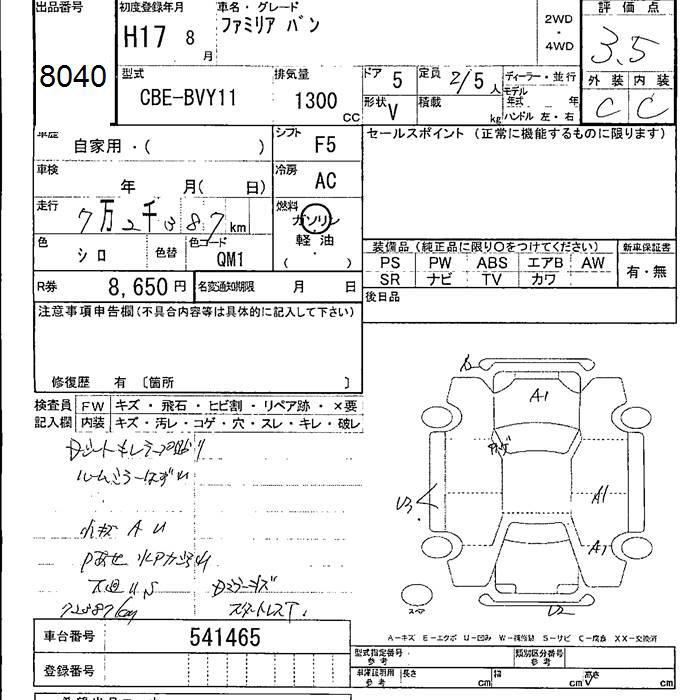 出品番号
8040
初度登録年月
H17 8 月
車名・グレード
ファミリア バン
2WD
・
4WD
評価点
3.5
外装 内装
C C
型式
CBE-BVY11
排気量
1300 CC
ドア 5
定員 2/5 人
形状 V
積載 kg
ディーラー・並行
モデル
年式 年
ハンドル 左・右
車歴 自家用・( )
シフト F5
セールスポイント (正常に機能するものに限ります)
車検 年 月( 日)
冷房 AC
走行 7万2千387km
燃料
ガソリン
軽油
・
( )
色 シロ 色替 色コード QM1
装備品 (純正品に限り○をつけてください)
新車保証書
PS PW ABS エアB AW
SR ナビ TV カワ
有・無
R券 8,650円 名変通知期限 月 日
後日品
注意事項申告欄(不具合内容等は具体的に記入して下さい)
修復歴 有 〔箇所 〕
検査員 FW キズ・飛石・ヒビ割・リペア跡・×要
記入欄 内装 キズ・汚レ・コゲ・穴・スレ・キレ・破レ
A1
U3
A1
A1
U2
スペア
ルームミラーはずれ
A U
72387km
スタートレスT.
A-キズ E-エクボ U-凹み W-補修跡 S-サビ C-腐食 XX-交換済
車台番号 541465
登録番号
型式指定番号
参考
類別区分番号
参考
車庫証明用
参考
長さ cm 幅 cm 高さ cm